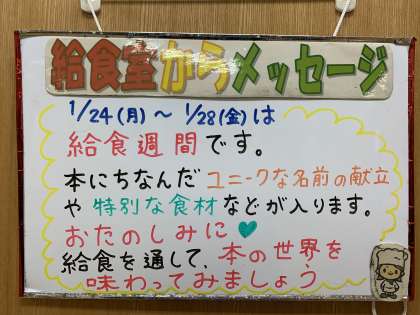 給食室からメッセージ
1/24(月)～1/28(金)は
給食週間です。
本にちなんだユニークな名前の献立
や特別な食材などが入ります。
おたのしみに♥
給食を通して、本の世界を
味わってみましょう